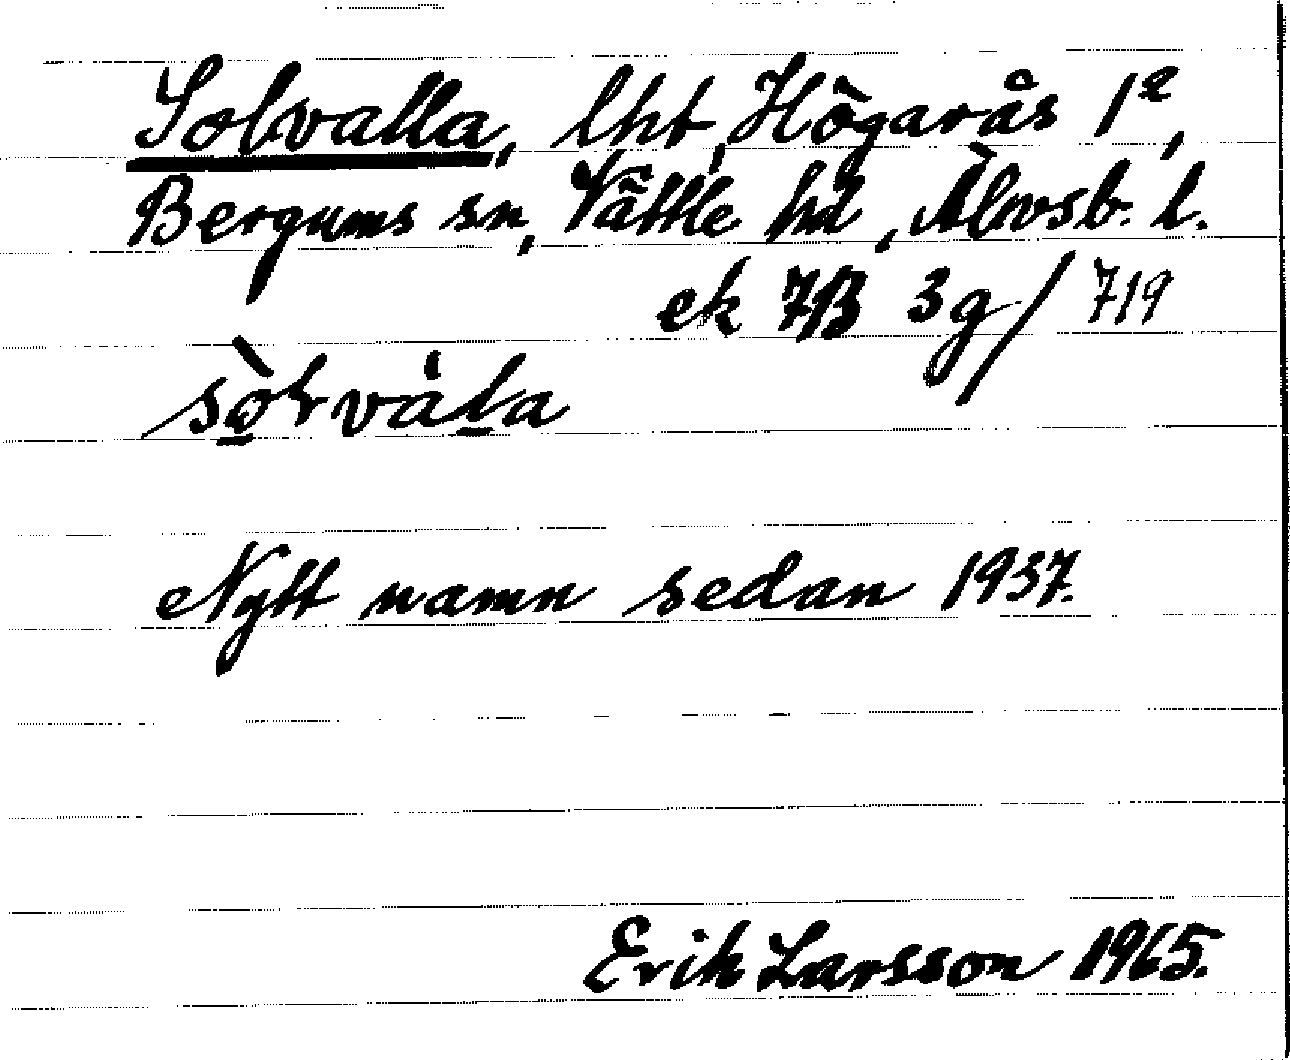 Solvalla, lht, Högarås 1e,
Bergums sn, Vättle hd, Älvsb. l.
ek 7B 3g/719
sò̱lvàḻa
Nytt namn sedan 1937.
Erik Larsson 1965.